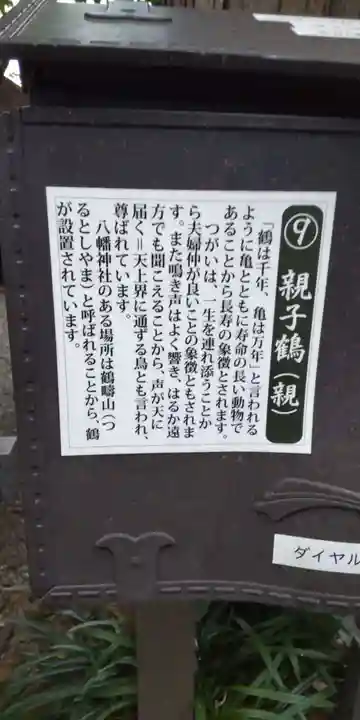 ⑨ 親子鶴(親)
「鶴は千年、亀は万年」と言われる
ように亀とともに寿命の長い動物で
あることから長寿の象徴とされます。
つがいは、一生を連れ添うことか
ら夫婦仲が良いことの象徴ともされま
す。また鳴き声はよく響き、はるか遠
方でも聞こえることから、声が天に
届く=天上界に通ずる鳥とも言われ、
尊ばれています。
八幡神社のある場所は鶴嶹山(つ
るとしやま)と呼ばれることから、鶴
が設置されています。
ダイヤル